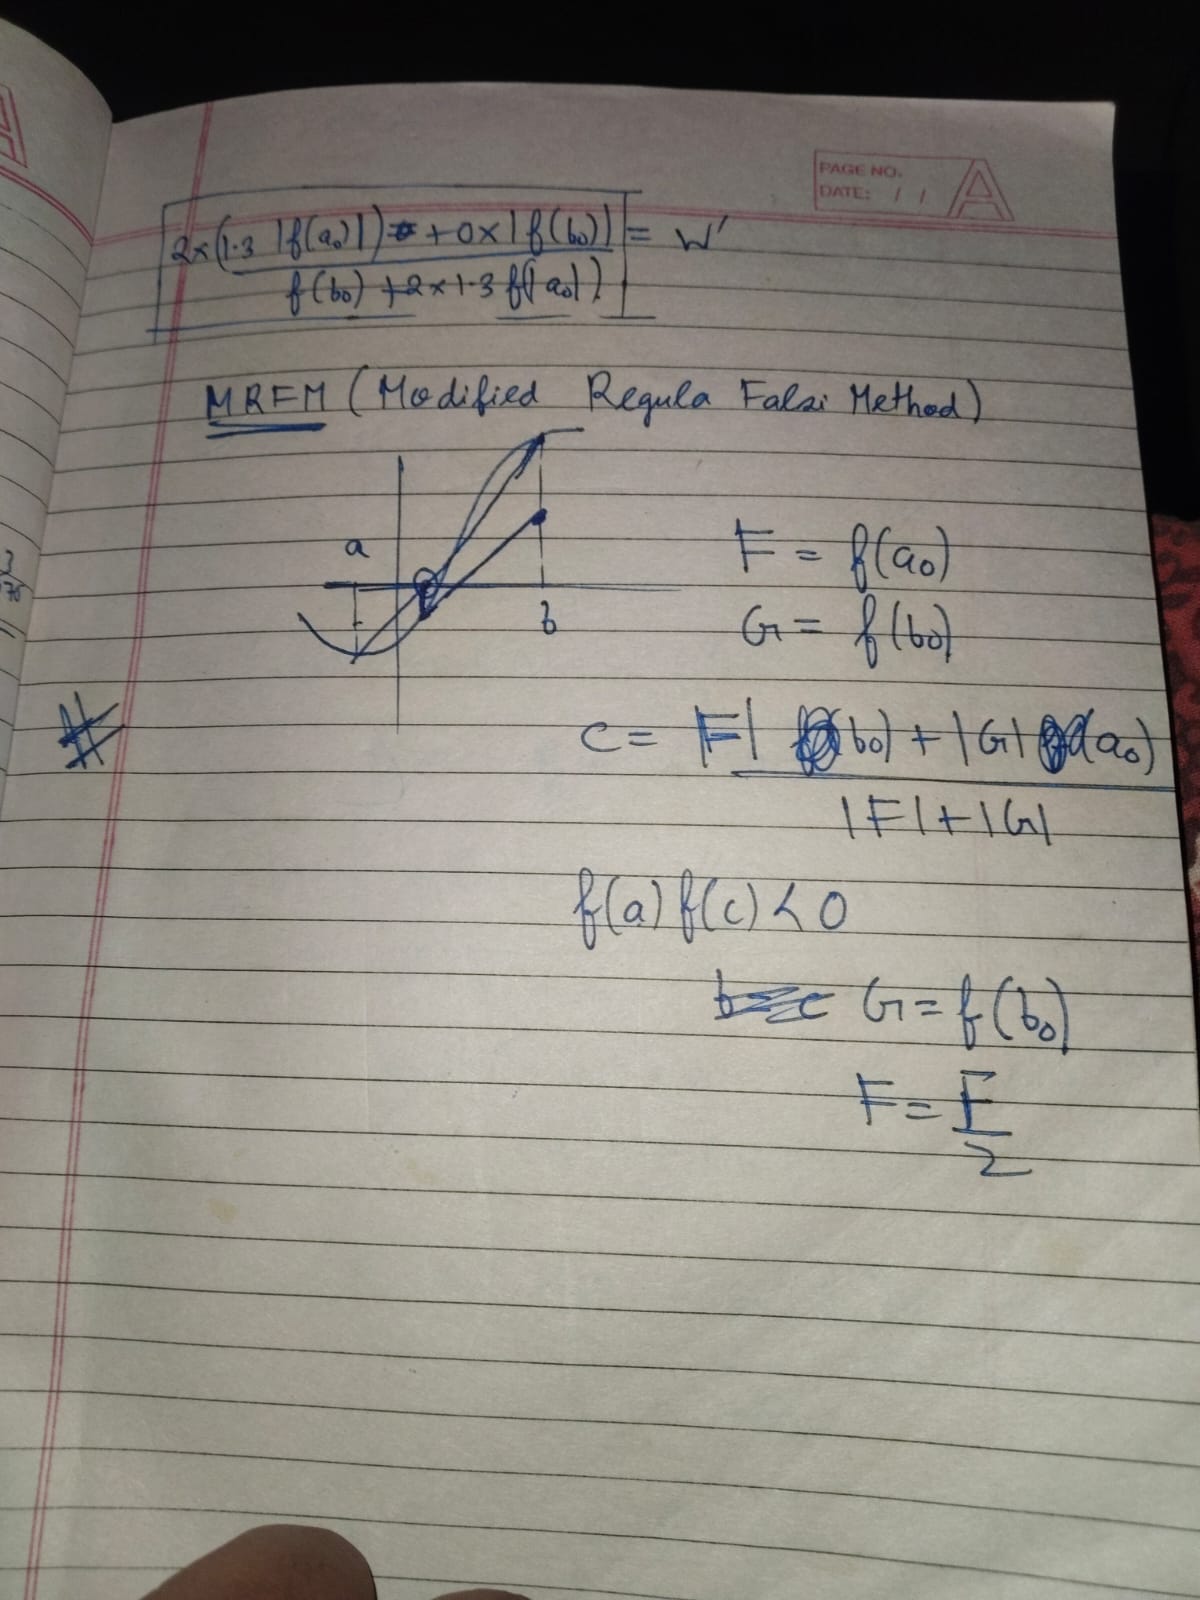 PAGE NO.
DATE: / /
A
2×(1.3 |f(a₀)|) + 0×|f(b₀)| = W'
f(b₀) + 2×1.3 f(a₀)
MRFM (Modified Regula Falsi Method)
a
b
F = f(a₀)
G = f(b₀)
#
c = |F| (b₀) + |G| (a₀)
|F| + |G|
f(a) f(c) < 0
b=c G = f(b₀)
F = F
2
3